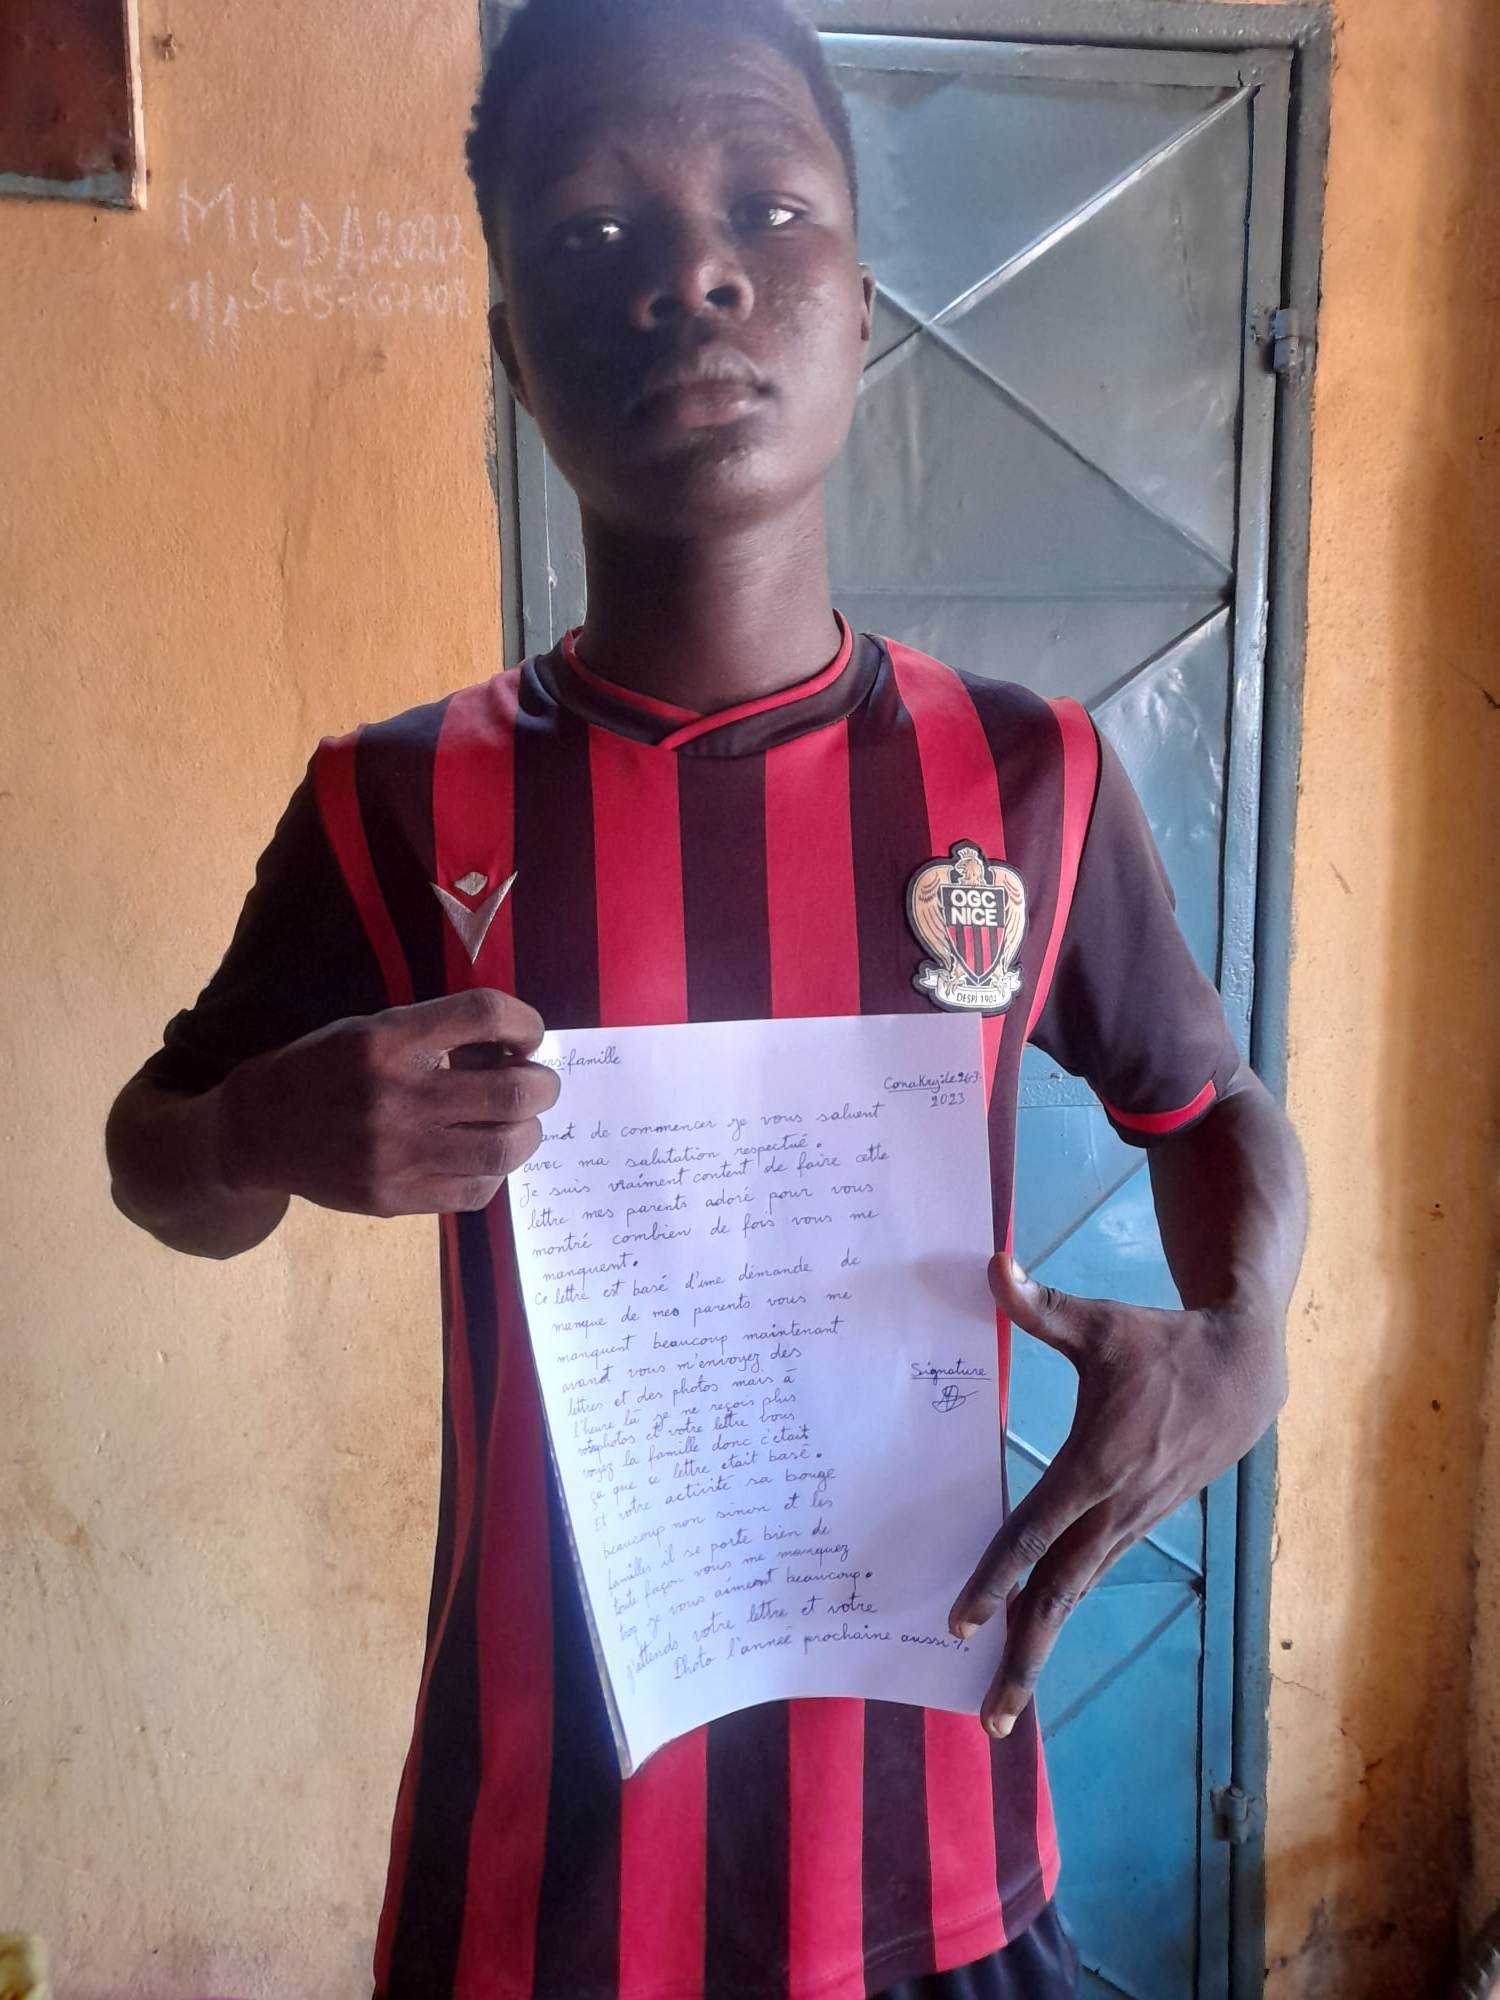 MILDA 2022
OGC
NICE
DESPI 1904
famille
Conakry: le 26-3-
2023
de commencer je vous saluent
avec ma salutation respectué.
Je suis vraiment content de faire cette
lettre mes parents adoré pour vous
montré combien de fois vous me
manquent.
Ce lettre est basé d'une démande de
manque de mes parents vous me
manquent beaucoup maintenant
avant vous m'envoyez des
lettres et des photos mais à
l'heure là je ne reçois plus
photos et votre lettre vous
voyez la famille donc c'était
ça que ce lettre etait basé.
Et votre activité sa bouge
beaucoup non sinon et les
familles il se porte bien de
toute façon vous me manquez
trop je vous aiment beaucoup.
j'attends votre lettre et votre
Photo l'année prochaine aussi
Signature